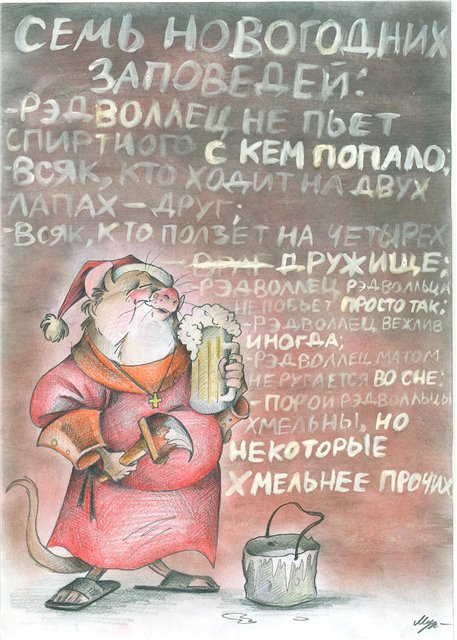 СЕМЬ НОВОГОДНИХ
ЗАПОВЕДЕЙ:
-РЭДВОЛЛЕЦ НЕ ПЬЕТ
СПИРТНОГО С КЕМ ПОПАЛО;
-ВСЯК, КТО ХОДИТ НА ДВУХ
ЛАПАХ – ДРУГ;
-ВСЯК, КТО ПОЛЗЕТ НА ЧЕТЫРЕХ
– ДРУГ ДРУЖИЩЕ;
-РЭДВОЛЛЕЦ РЭДВОЛЛЬЦА
НЕ ПОБЬЕТ ПРОСТО ТАК;
-РЭДВОЛЛЕЦ ВЕЖЛИВ
ИНОГДА;
-РЭДВОЛЛЕЦ МАТОМ
НЕ РУГАЕТСЯ ВО СНЕ;
-ПОРОЙ РЭДВОЛЛЬЦЫ
ХМЕЛЬНЫ, НО
НЕКОТОРЫЕ
ХМЕЛЬНЕЕ ПРОЧИХ